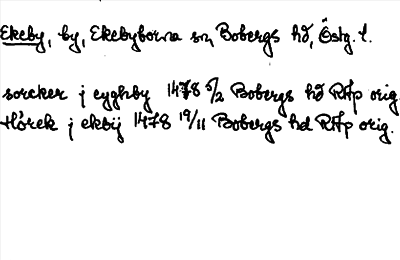 Ekeby, by, Ekebyborna sn, Bobergs hd, Östg. l.
sorcker j eyghby 1478 5/2 Bobergs hd RAp orig.
Hórek j ekbij 1478 19/11 Bobergs hd RAp orig.